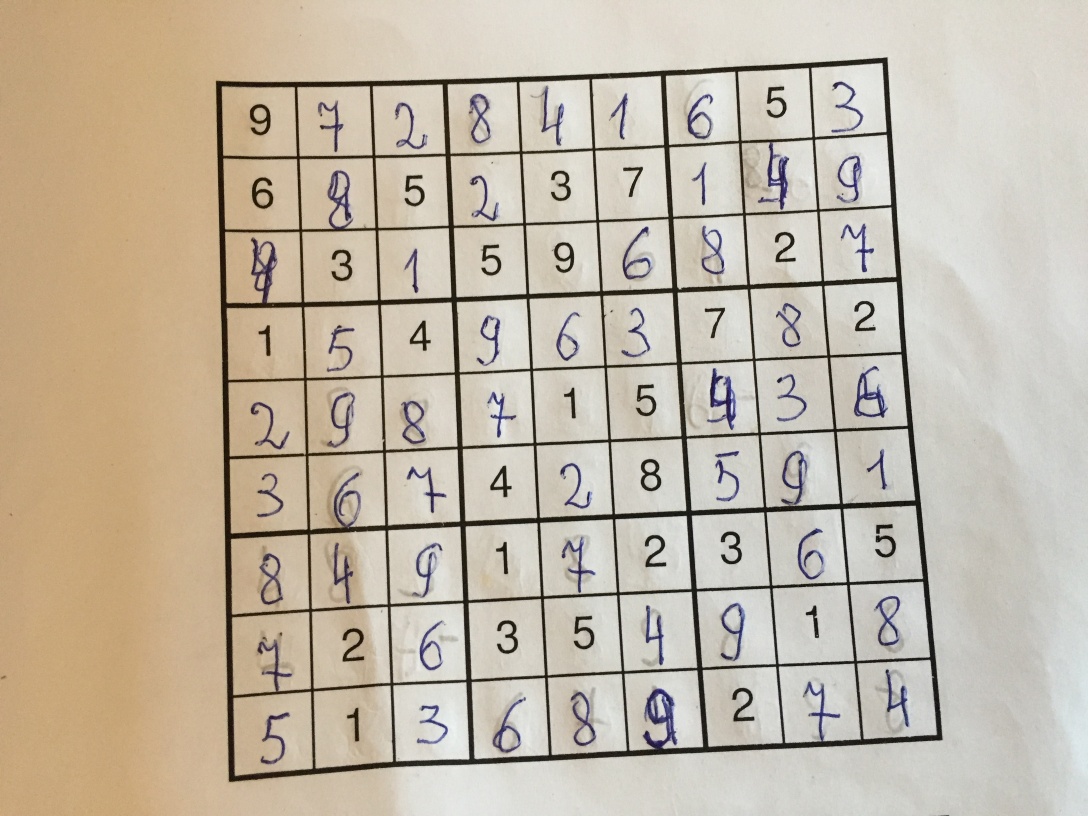 9 7 2 8 4 1 6 5 3
6 8 5 2 3 7 1 4 9
4 3 1 5 9 6 8 2 7
1 5 4 9 6 3 7 8 2
2 9 8 7 1 5 4 3 6
3 6 7 4 2 8 5 9 1
8 4 9 1 7 2 3 6 5
7 2 6 3 5 4 9 1 8
5 1 3 6 8 9 2 7 4